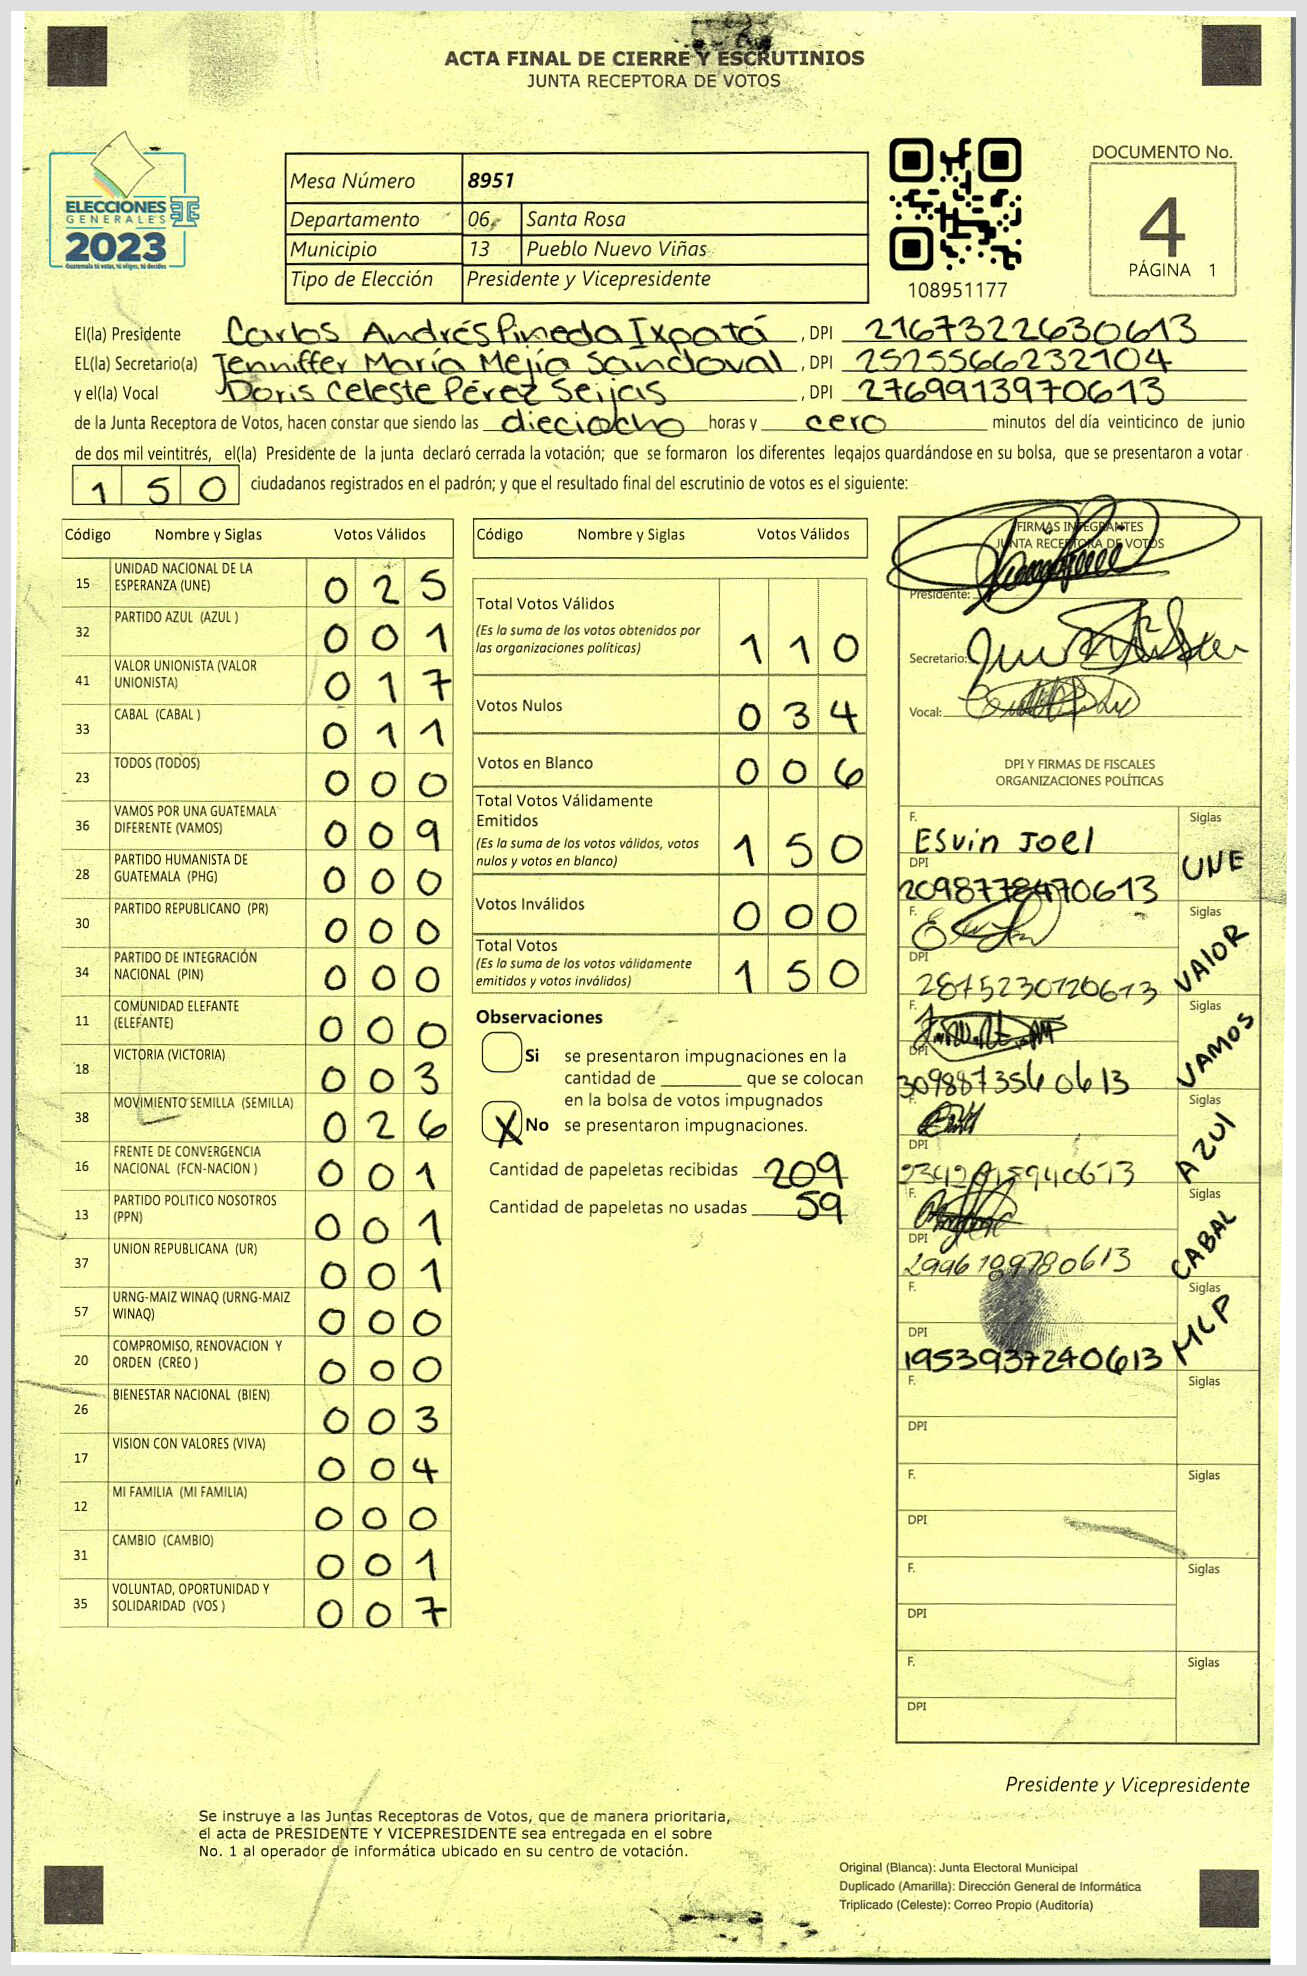 ACTA FINAL DE CIERRE Y ESCRUTINIOS
JUNTA RECEPTORA DE VOTOS
ELECCIONES
GENERALES
2023
Guatemala tú votas, tú eliges, tú decides
Mesa Número 8951
Departamento 06 Santa Rosa
Municipio 13 Pueblo Nuevo Viñas
Tipo de Elección Presidente y Vicepresidente
108951177
DOCUMENTO No.
4
PÁGINA 1
El(la) Presidente Carlos Andrés Pineda Ixpatá, DPI 2167322630613
EL(la) Secretario(a) Jenniffer María Mejía Sandoval, DPI 2525566232104
y el(la) Vocal Doris Celeste Pérez Seijas, DPI 2769913970613
de la Junta Receptora de Votos, hacen constar que siendo las dieciocho horas y cero minutos del día veinticinco de junio
de dos mil veintitrés, el(la) Presidente de la junta declaró cerrada la votación; que se formaron los diferentes legajos guardándose en su bolsa, que se presentaron a votar
150 ciudadanos registrados en el padrón; y que el resultado final del escrutinio de votos es el siguiente:
Código Nombre y Siglas Votos Válidos
15 UNIDAD NACIONAL DE LA ESPERANZA (UNE) 025
32 PARTIDO AZUL (AZUL ) 001
41 VALOR UNIONISTA (VALOR UNIONISTA) 017
33 CABAL (CABAL ) 011
23 TODOS (TODOS) 000
36 VAMOS POR UNA GUATEMALA DIFERENTE (VAMOS) 009
28 PARTIDO HUMANISTA DE GUATEMALA (PHG) 000
30 PARTIDO REPUBLICANO (PR) 000
34 PARTIDO DE INTEGRACIÓN NACIONAL (PIN) 000
11 COMUNIDAD ELEFANTE (ELEFANTE) 000
18 VICTORIA (VICTORIA) 003
38 MOVIMIENTO SEMILLA (SEMILLA) 026
16 FRENTE DE CONVERGENCIA NACIONAL (FCN-NACION ) 001
13 PARTIDO POLITICO NOSOTROS (PPN) 001
37 UNION REPUBLICANA (UR) 001
57 URNG-MAIZ WINAQ (URNG-MAIZ WINAQ) 000
20 COMPROMISO, RENOVACION Y ORDEN (CREO ) 000
26 BIENESTAR NACIONAL (BIEN) 003
17 VISION CON VALORES (VIVA) 004
12 MI FAMILIA (MI FAMILIA) 000
31 CAMBIO (CAMBIO) 001
35 VOLUNTAD, OPORTUNIDAD Y SOLIDARIDAD (VOS ) 007
Código Nombre y Siglas Votos Válidos
Total Votos Válidos 110
(Es la suma de los votos obtenidos por
las organizaciones políticas)
Votos Nulos 034
Votos en Blanco 006
Total Votos Válidamente
Emitidos 150
(Es la suma de los votos válidos, votos
nulos y votos en blanco)
Votos Inválidos 000
Total Votos 150
(Es la suma de los votos válidamente
emitidos y votos inválidos)
Observaciones
Si se presentaron impugnaciones en la
cantidad de ________ que se colocan
en la bolsa de votos impugnados
X No se presentaron impugnaciones.
Cantidad de papeletas recibidas 209
Cantidad de papeletas no usadas 59
FIRMAS INTEGRANTES
JUNTA RECEPTORA DE VOTOS
Presidente:
Secretario:
Vocal:
DPI Y FIRMAS DE FISCALES
ORGANIZACIONES POLÍTICAS
F. Esvin Joel Siglas UNE
DPI 2098778470613
F. Siglas VALOR
DPI 2875230120613
F. Siglas VAMOS
DPI 3098873560613
F. Siglas AZUl
DPI
F. Siglas CABAL
DPI 2996109780613
F. Siglas MLP
DPI 1953937240613
F. Siglas
DPI
F. Siglas
DPI
F. Siglas
DPI
F. Siglas
DPI
Presidente y Vicepresidente
Se instruye a las Juntas Receptoras de Votos, que de manera prioritaria,
el acta de PRESIDENTE Y VICEPRESIDENTE sea entregada en el sobre
No. 1 al operador de informática ubicado en su centro de votación.
Original (Blanca): Junta Electoral Municipal
Duplicado (Amarilla): Dirección General de Informática
Triplicado (Celeste): Correo Propio (Auditoría)